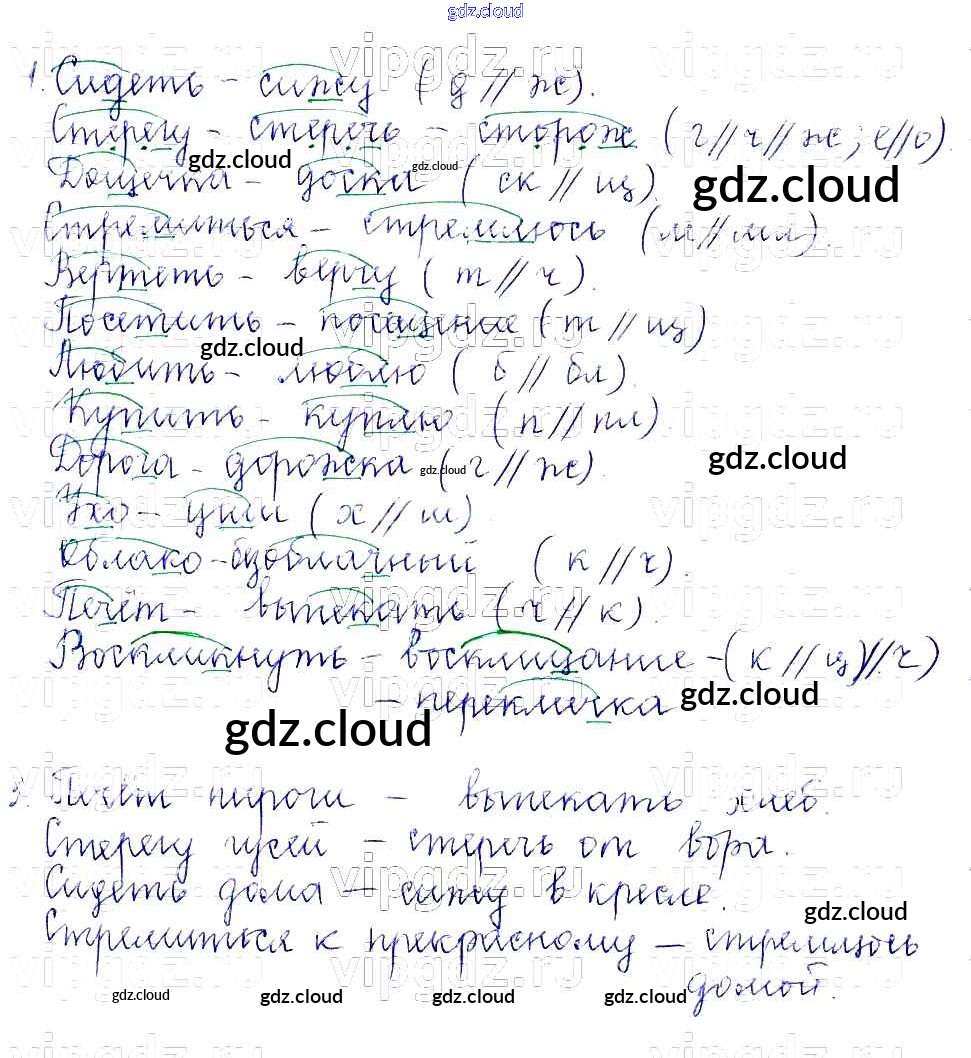 gdz.cloud
1. Сидеть - сижу (д // ж).
Стерегу - стеречь - сторож (г // ч // ж; е // о).
gdz.cloud gdz.cloud gdz.cloud
Дощечка - доска (ск // щ).
Стремиться - стремлюсь (м // мл).
Вертеть - верчу (т // ч).
Посетить - посещение (т // щ)
gdz.cloud
Любить - люблю (б // бл).
Купить - куплю (п // пл).
Дорога - дорожка (г // ж).
gdz.cloud gdz.cloud
Ухо - уши (х // ш).
Облако - безоблачный (к // ч).
Печёт - выпекать (ч // к).
Воскликнуть - восклицание - (к // ц // ч)
- перекличка
gdz.cloud gdz.cloud
3. Печёт пироги - выпекать хлеб.
Стерегу гусей - стеречь от вора.
Сидеть дома - сижу в кресле.
gdz.cloud
Стремиться к прекрасному - стремлюсь
домой.
gdz.cloud gdz.cloud gdz.cloud gdz.cloud